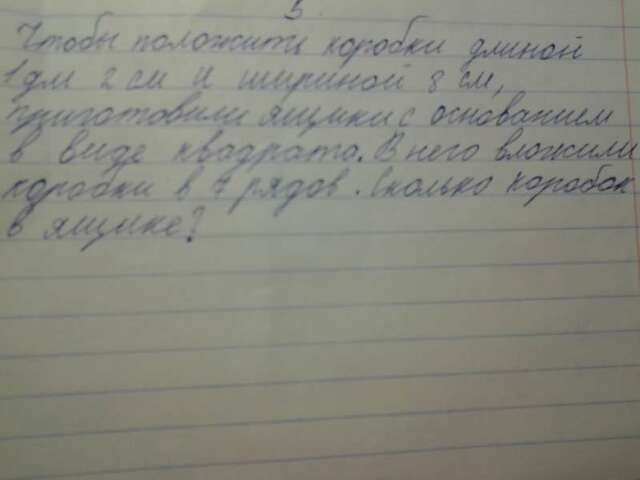 5
Чтобы положить коробки длиной
1 дм 2 см и шириной 8 см,
приготовили ящики с основанием
в виде квадрата. В него вложили
коробки в 7 рядов. Сколько коробок
в ящике?